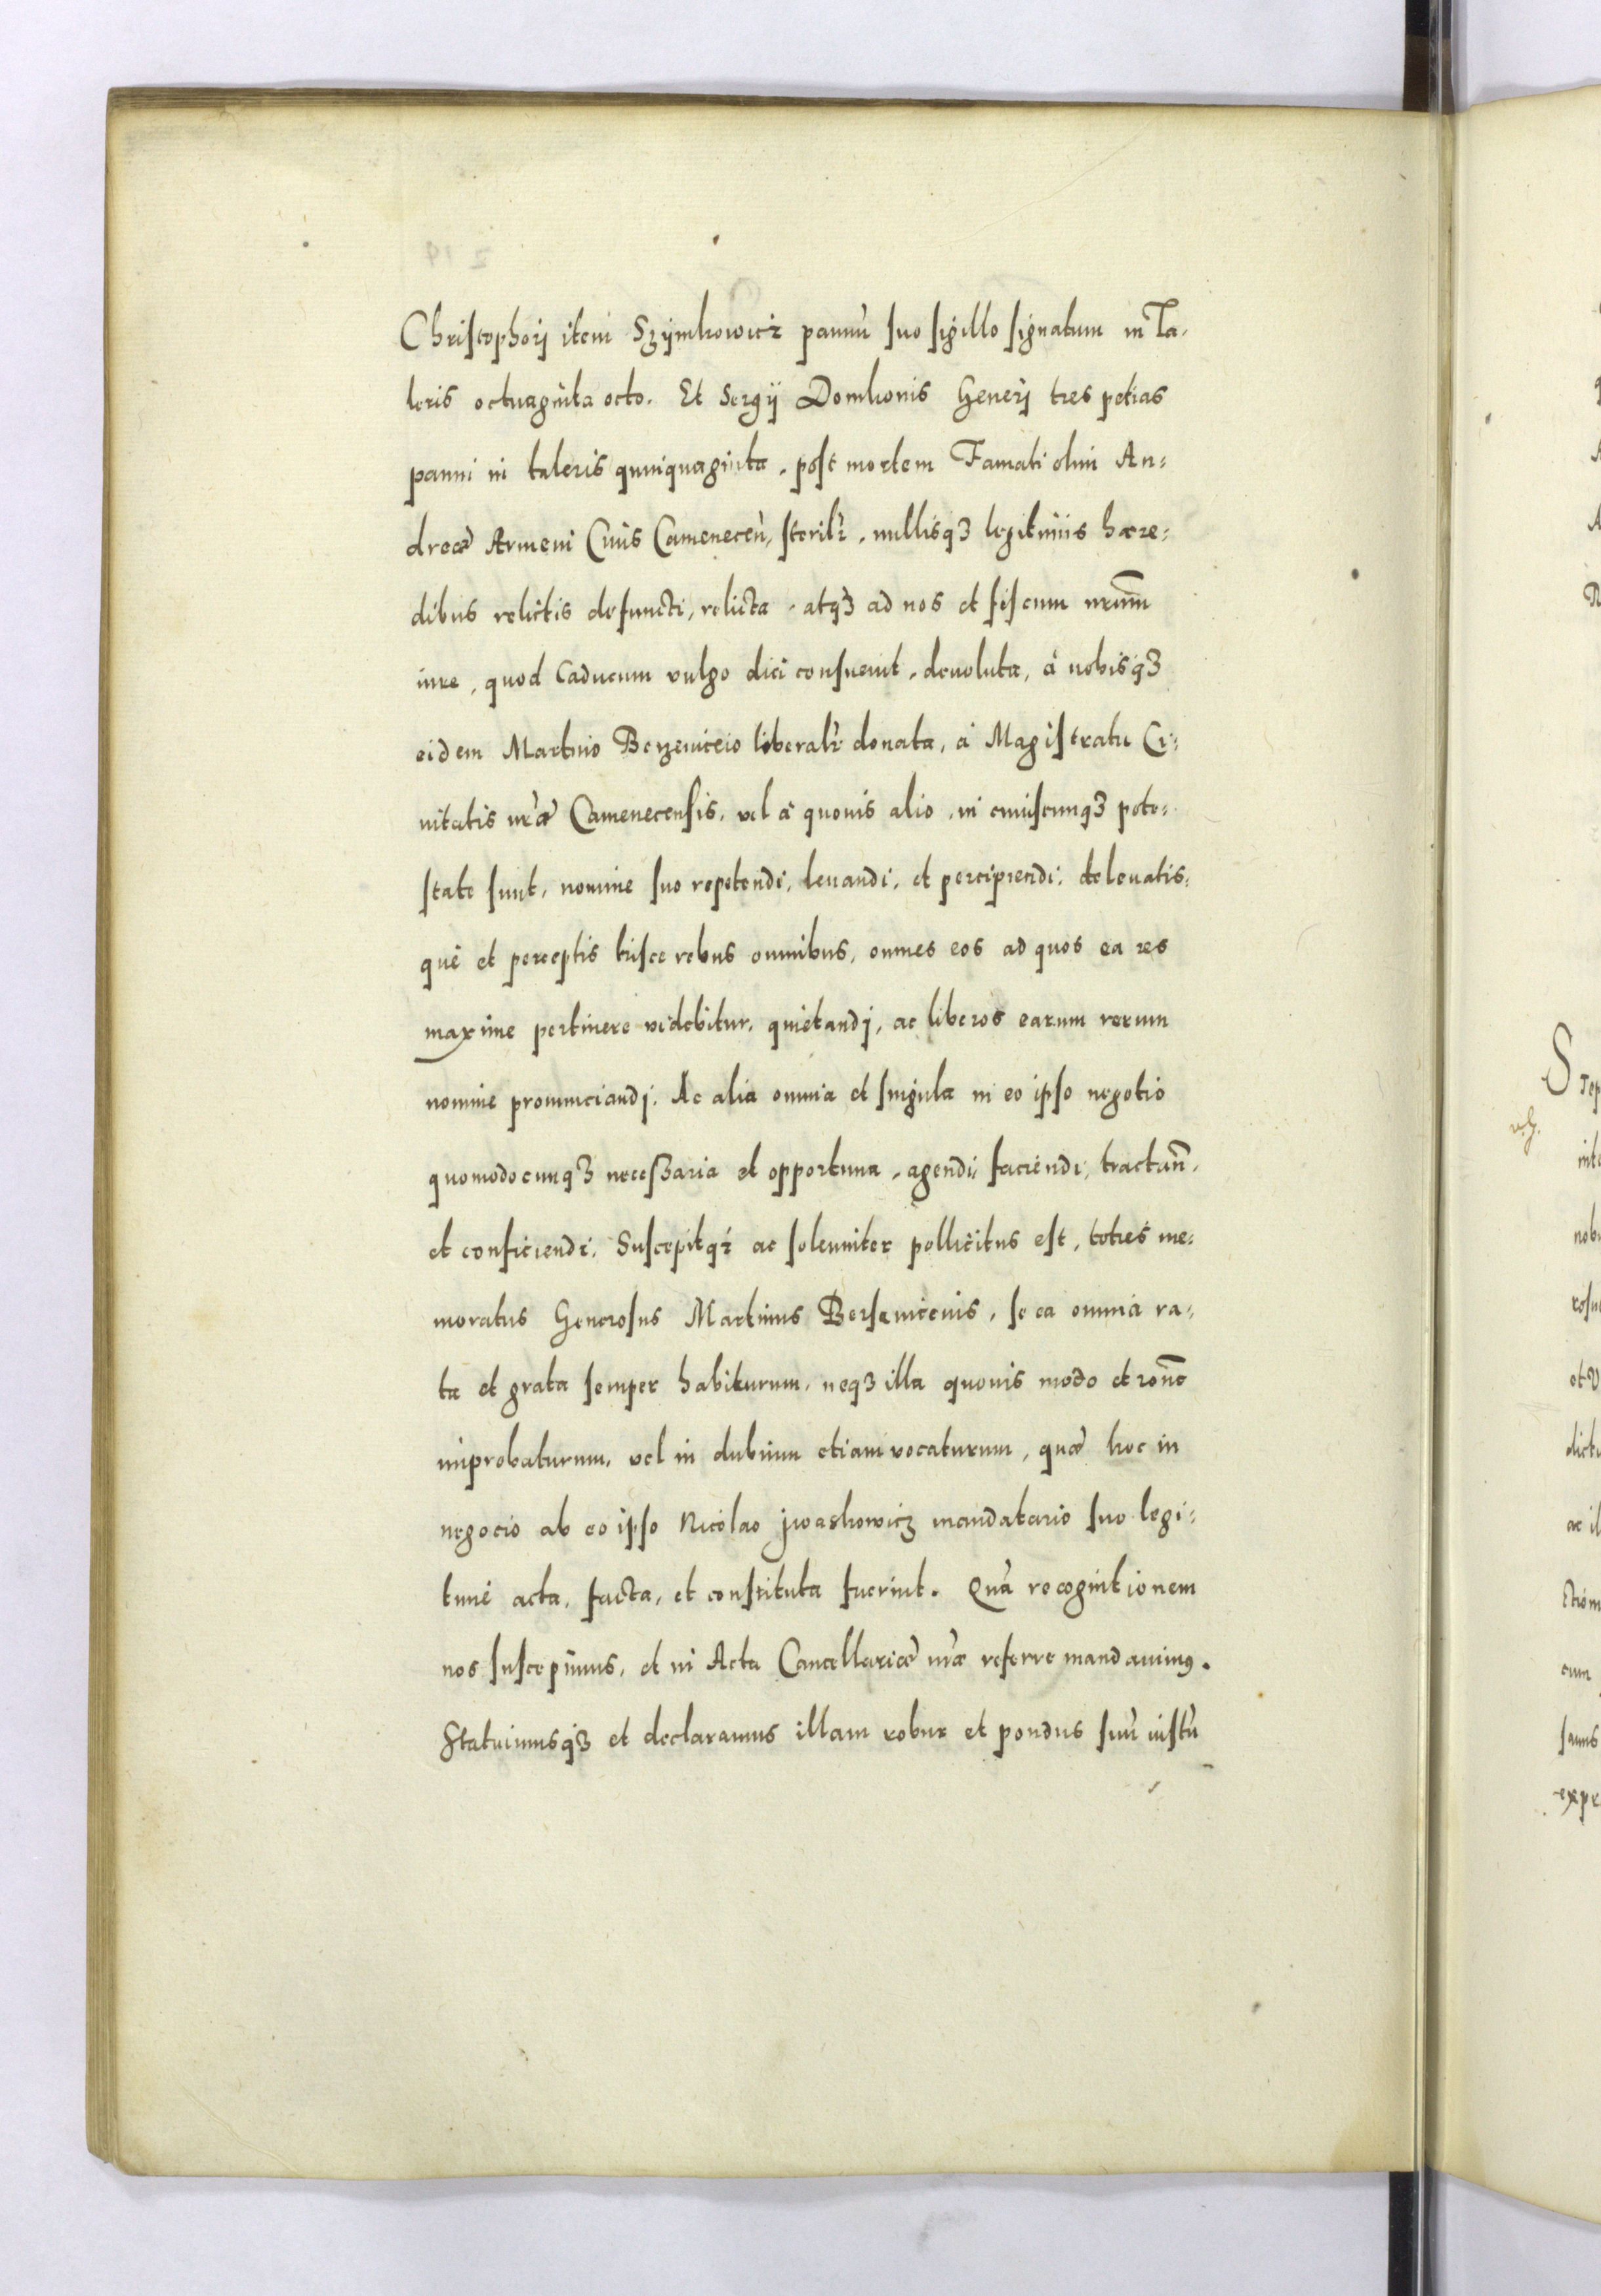 Christophorj item Szymkowicz pannũ suo sigillo signatum in Ta-
leris octuaginta octo. Et Sergÿ Domkonis Generj tres petias
panni in taleris quinquaginta, post mortem Famati olim An-
dreæ Armeni Ciuis Camenecen̄, sterilr̄, nullisq3 legitimis hære-
dibus relictis defuncti, relicta, atq3 ad nos et fiscum nr̃um
iure, quod Caducum vulgo dici consueuit, deuoluta, à nobisq3
eidem Martino Berzeuiceio liberalr̄ donata, à Magistratu Ci-
uitatis nr̃æ Camenecensis, vel à quouis alio, in cuiuscunq3 pote-
state sunt, nomine suo repetendi, leuandi, et percipiendi, de leuatis-
què et perceptis hisce rebus omnibus, omnes eos ad quos ea res
maxime pertinere videbitur, quietandj, ac liberos earum rerum
nomine pronunciandj. Ac alia omnia et singula in eo ipso negotio
quomodocunq3 necessaria et opportuna, agendi, faciendi, tractan̄,
et conficiendi. Suscepitq3 ac solenniter pollicitus est, toties me-
moratus Generosus Martinus Berseuiceuis, se ea omnia ra-
ta et grata semper habiturum, neq3 illa quouis modo et ron̄e
improbaturum, vel in dubium etiam vocaturum, quæ hoc in
negocio ab eo ipso Nicolao Jwaskowicz mandatario suo legi-
timè acta, facta, et constituta fuerint. Quã recognitionem
nos suscepimus, et in Acta Cancellariæ nr̃æ referre mandauimus.
Statuimusq3 et declaramus illam robur et pondus suũ iustũ